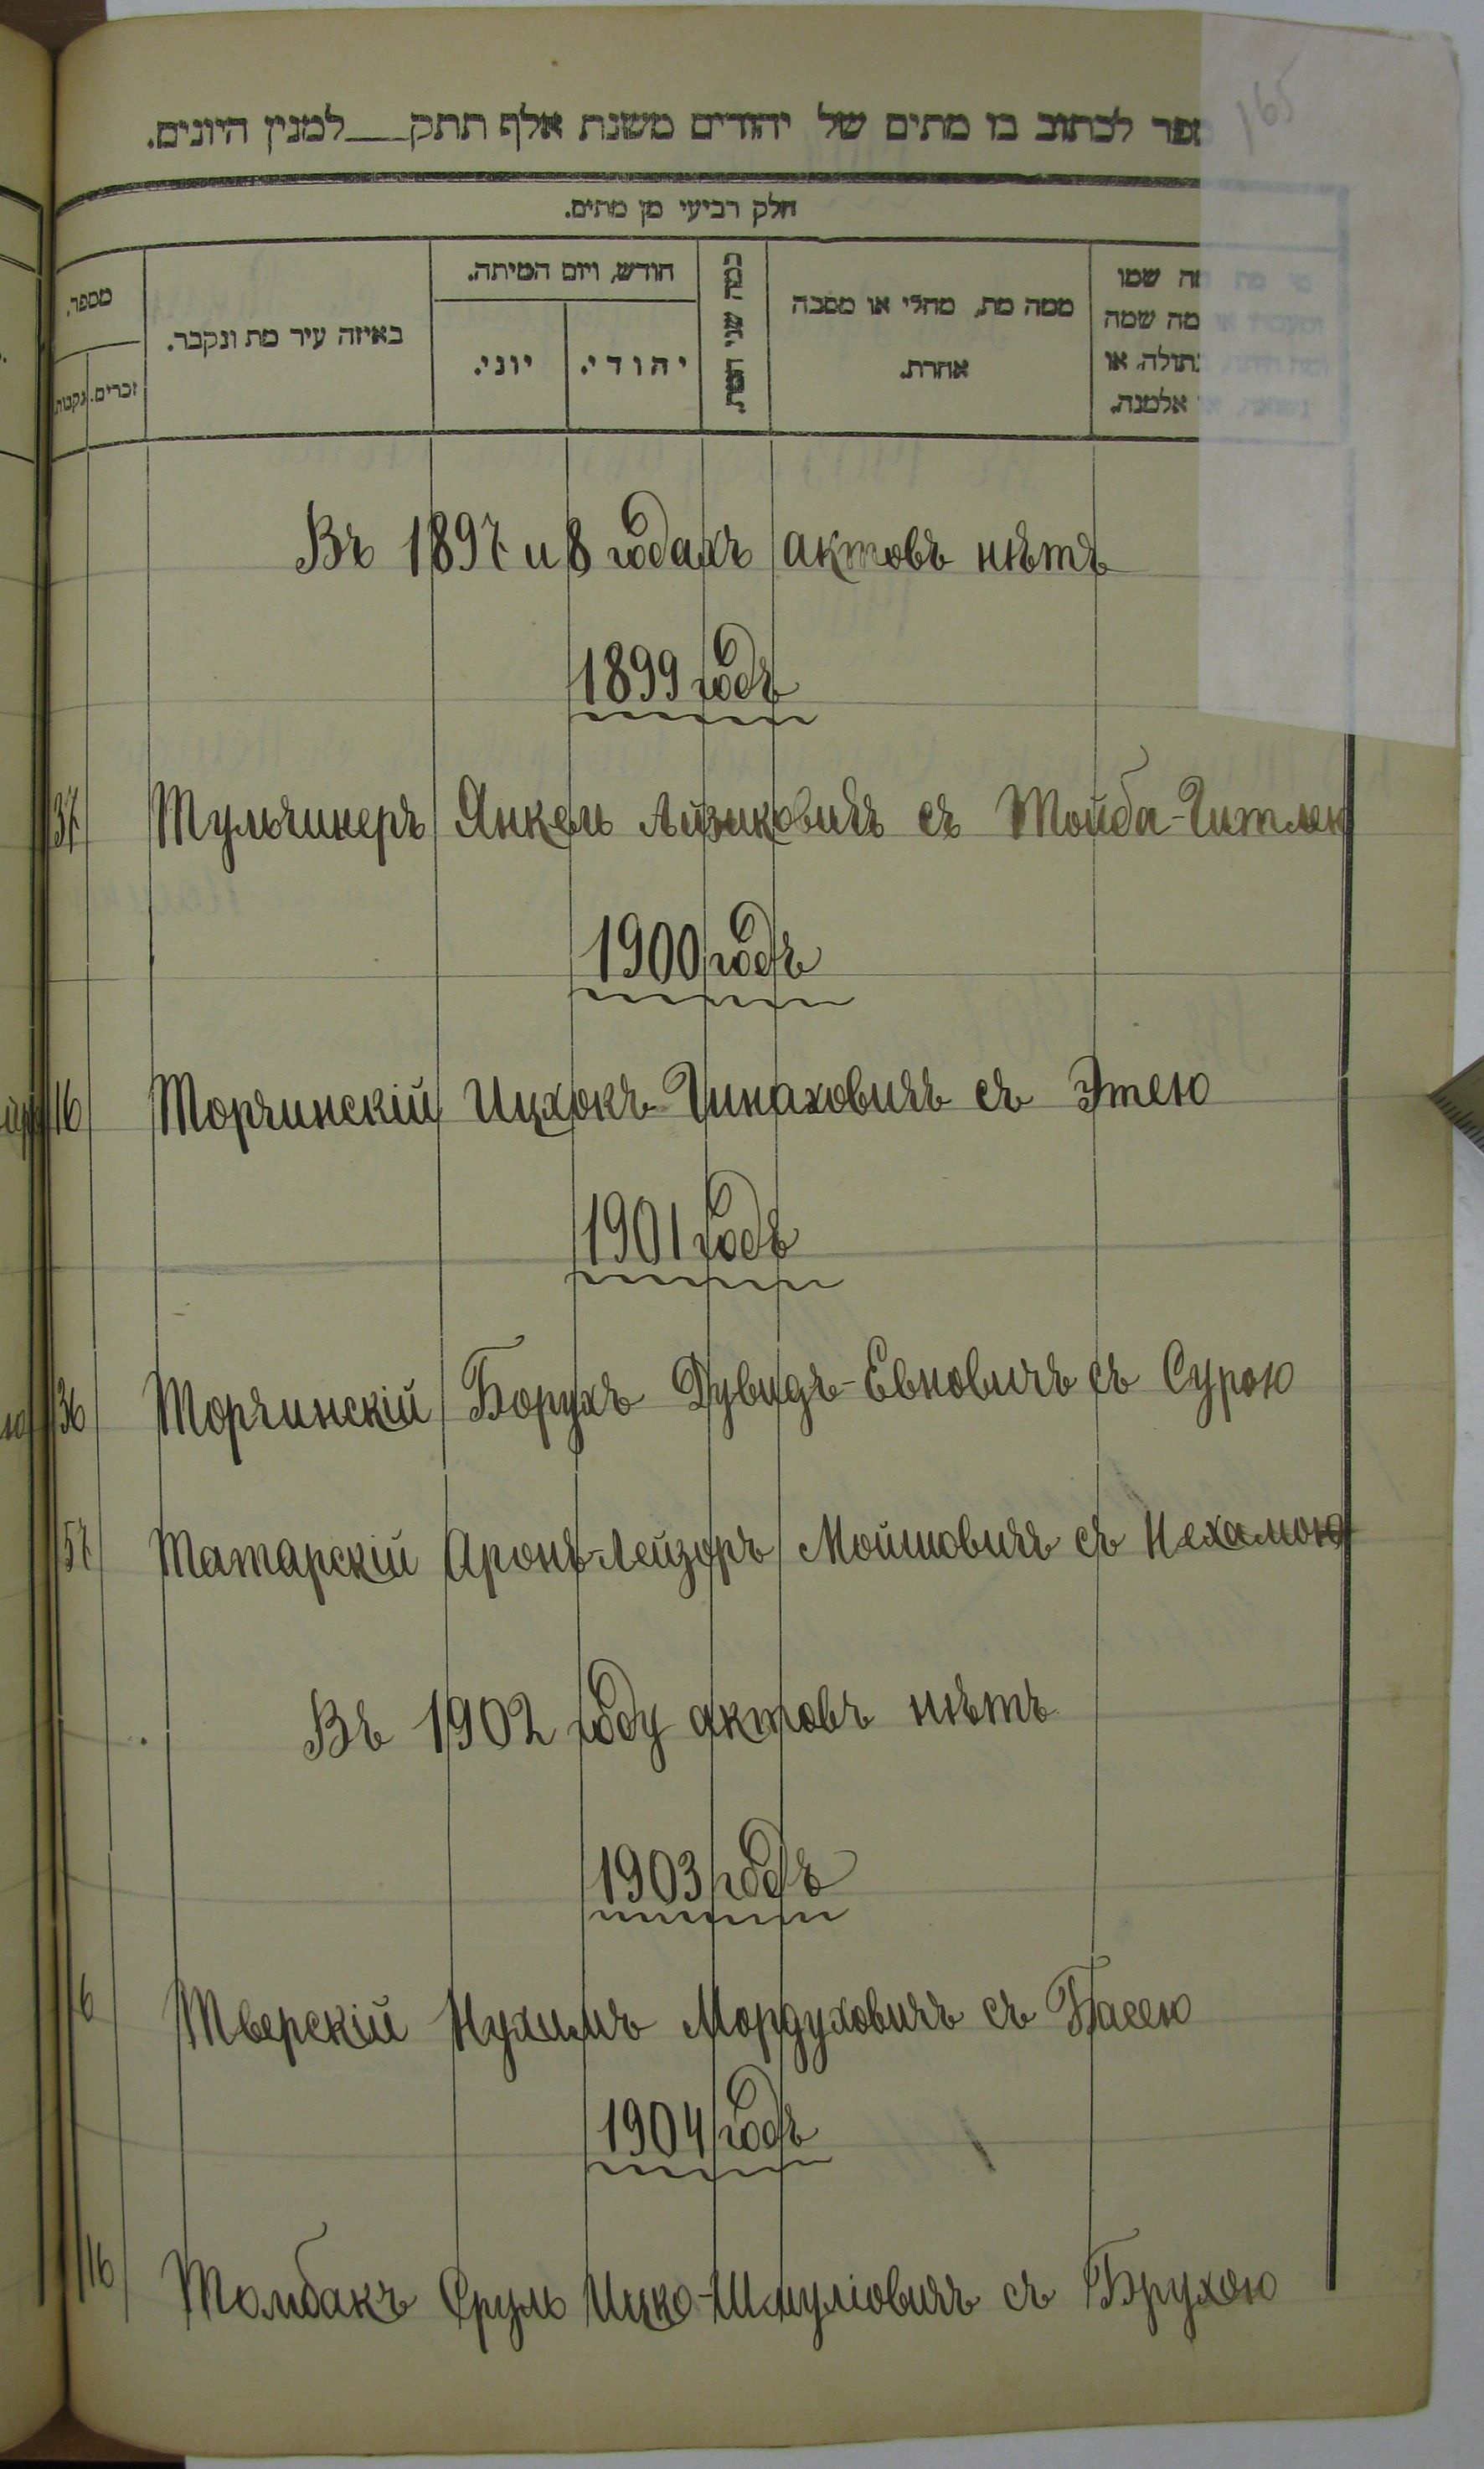 165
ספר לכתוב בו מתים של יהודים משנת אלף תתק למנין היונים.
חלק רביעי מן מתים.
מה שמו
מה שמה
בתולה, או
אלמנה.
ממה מת, מחלי או מסבה
אחרת.
כמה שני המת.
חודש, ויום המיתה.
יהודי.
יוני.
באיזה עיר מת ונקבר.
מספר.
זכרים.
נקבות
Въ 1897 и 8 годахъ актовъ нѣтъ
1899 годъ
37 Тульчинеръ Янкель Айзиковичъ съ Тойба-Гитлею
1900 годъ
16 Торчинскій Ицхокъ-Гинаховичъ съ Этею
1901 годъ
36 Торчинскій Борухъ Дувидъ-Евновичъ съ Сурою
57 Татарскій Аронъ-Лейзоръ Мойшовичъ съ Нехамою
Въ 1902 году актовъ нѣтъ
1903 годъ
6 Тверскій Нухимъ Мордуховичъ съ Басею
1904 годъ
16 Томбакъ Сруль Ицко-Шмуліовичъ съ Брухою